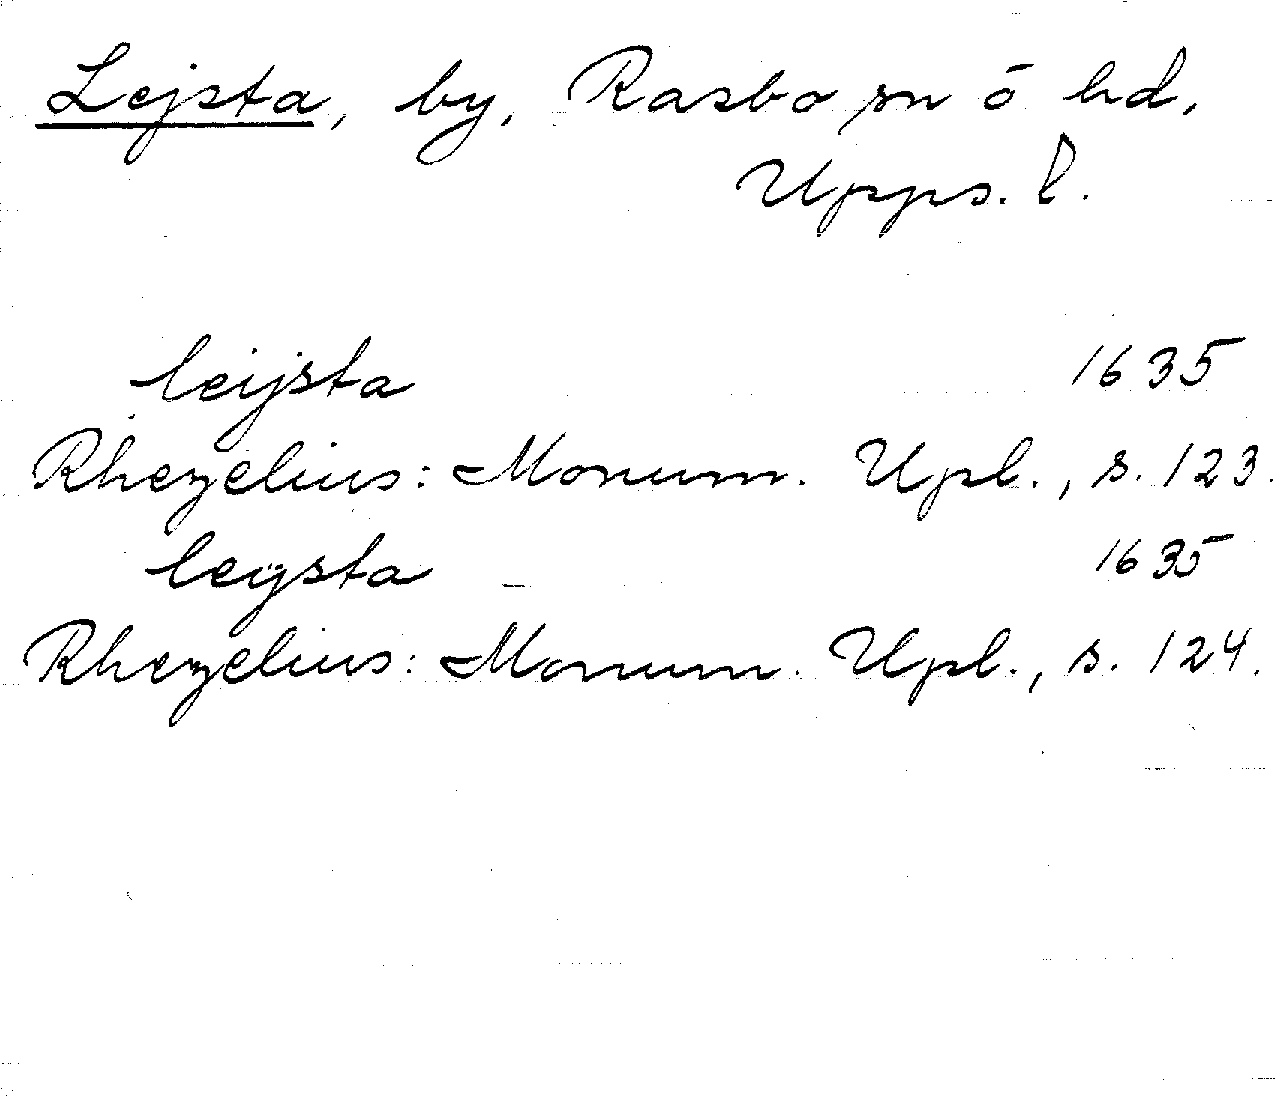 Lejsta, by, Rasbo sn ō hd,
Upps. l.
leijsta 1635
Rhezelius: Monum. Upl., s. 123.
leÿsta 1635
Rhezelius: Monum. Upl., s. 124.